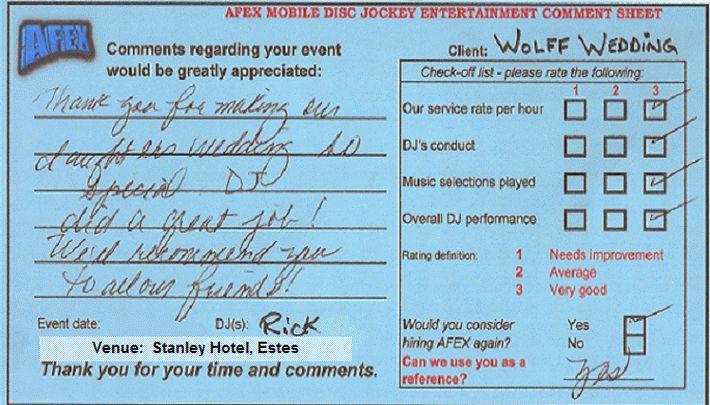 AFEX MOBILE DISC JOCKEY ENTERTAINMENT COMMENT SHEET
AFEX
Comments regarding your event
would be greatly appreciated:
Thank you for making our
daughters wedding so
special. DJ
did a great job!
We'd recommend you
to all our friends!
Event date:
DJ(s): Rick
Venue: Stanley Hotel, Estes
Thank you for your time and comments.
Client: WOLFF WEDDING
Check-off list - please rate the following:
1 2 3
Our service rate per hour
DJ's conduct
Music selections played
Overall DJ performance
Rating definition: 1 Needs improvement
2 Average
3 Very good
Would you consider Yes
hiring AFEX again? No
Can we use you as a
reference? Yes